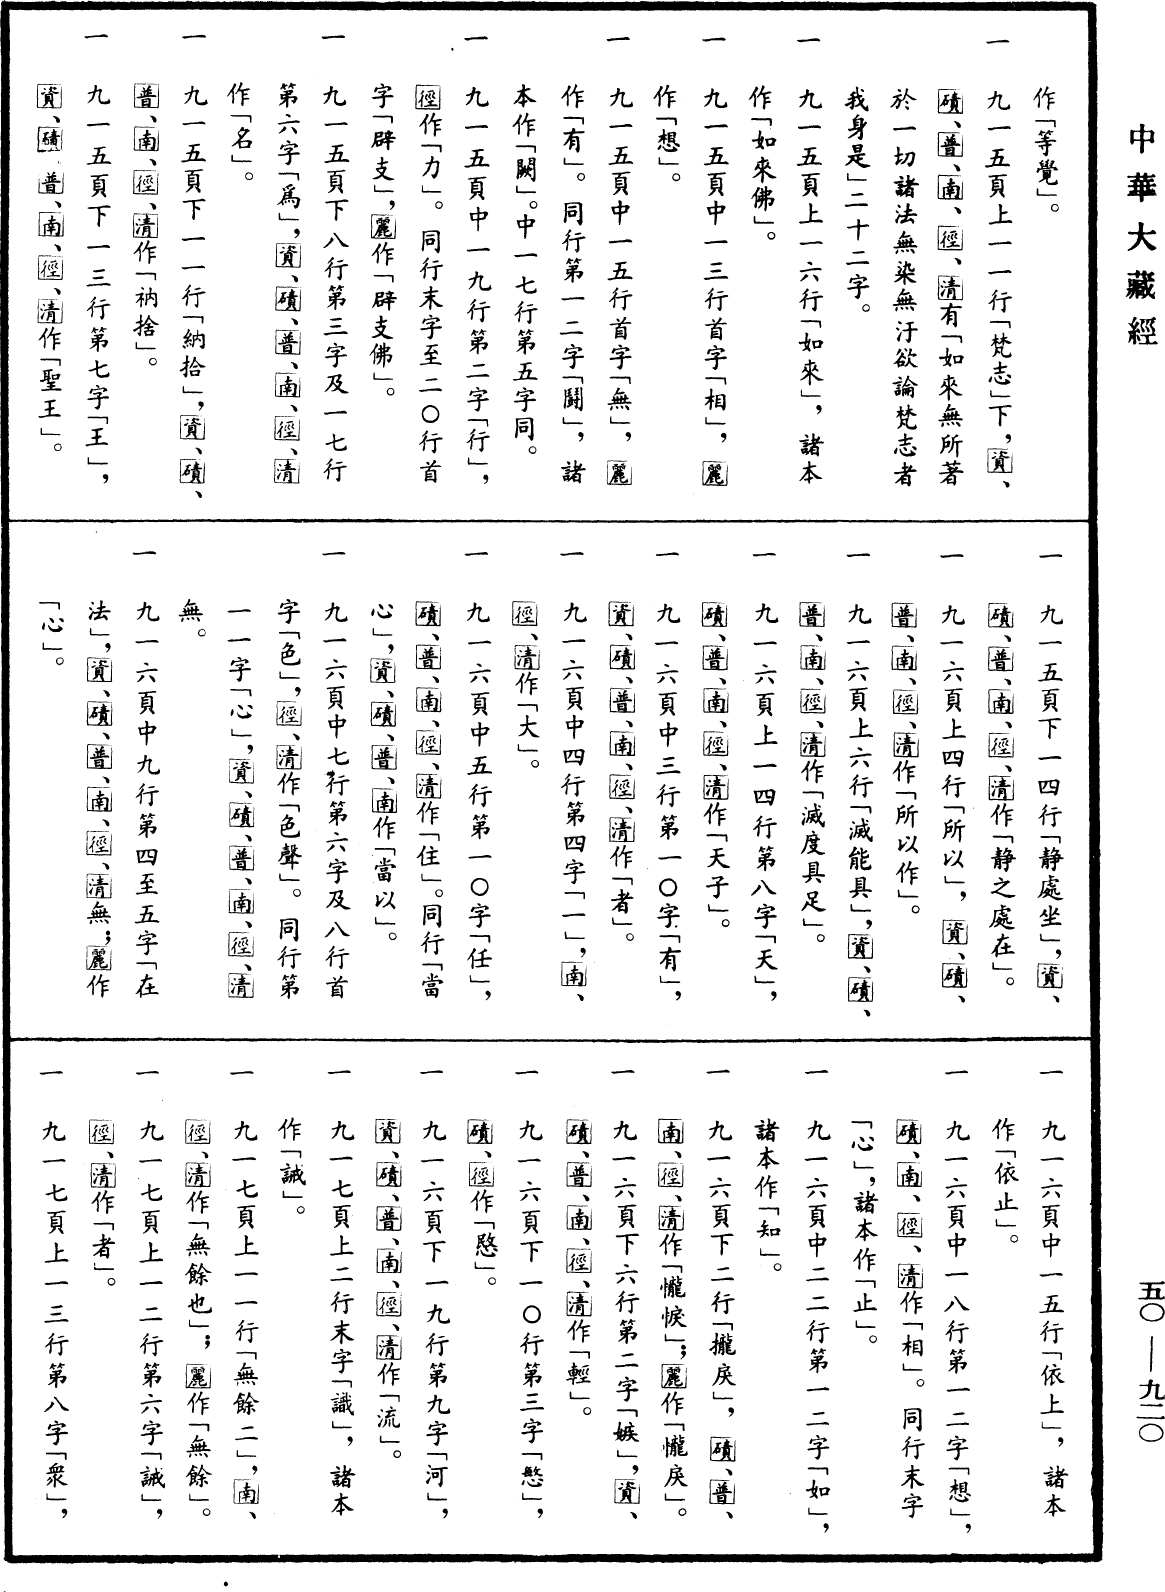 中華大藏經
作「等覺」。
一 九一五頁上一一行「梵志」下，資、
磧、普、南、徑、清有「如來無所著
於一切諸法無染無汙欲論梵志者
我身是」二十二字。
一 九一五頁上一六行「如來」，諸本
作「如來佛」。
一 九一五頁中一三行首字「相」，麗
作「想」。
一 九一五頁中一五行首字「無」，麗
作「有」。同行第一二字「鬪」，諸
本作「闕」。中一七行第五字同。
一 九一五頁中一九行第二字「行」，
徑作「力」。同行末字至二〇行首
字「辟支」，麗作「辟支佛」。
一 九一五頁下八行第三字及一七行
第六字「爲」，資、磧、普、南、徑、清
作「名」。
一 九一五頁下一一行「納拾」，資、磧、
普、南、徑、清作「衲捨」。
一 九一五頁下一三行第七字「王」，
資、磧、普、南、徑、清作「聖王」。
一 九一五頁下一四行「靜處坐」，資、
磧、普、南、徑、清作「靜之處在」。
一 九一六頁上四行「所以」，資、磧、
普、南、徑、清作「所以作」。
一 九一六頁上六行「滅能具」，資、磧、
普、南、徑、清作「滅度具足」。
一 九一六頁上一四行第八字「天」，
磧、普、南、徑、清作「天子」。
一 九一六頁中三行第一〇字「有」，
資、磧、普、南、徑、清作「者」。
一 九一六頁中四行第四字「一」，南、
徑、清作「大」。
一 九一六頁中五行第一〇字「任」，
磧、普、南、徑、清作「住」。同行「當
心」，資、磧、普、南作「當以」。
一 九一六頁中七行第六字及八行首
字「色」，徑、清作「色聲」。同行第
一一字「心」，資、磧、普、南、徑、清
無。
一 九一六頁中九行第四至五字「在
法」，資、磧、普、南、徑、清無；麗作
「心」。
一 九一六頁中一五行「依上」，諸本
作「依止」。
一 九一六頁中一八行第一二字「想」，
磧、南、徑、清作「相」。同行末字
「心」，諸本作「止」。
一 九一六頁中二二行第一二字「如」，
諸本作「知」。
一 九一六頁下二行「攏戾」，磧、普、
南、徑、清作「儱悷」；麗作「儱戾」。
一 九一六頁下六行第二字「嫉」，資、
磧、普、南、徑、清作「輕」。
一 九一六頁下一〇行第三字「慜」，
磧、徑作「愍」。
一 九一六頁下一九行第九字「河」，
資、磧、普、南、徑、清作「流」。
一 九一七頁上二行末字「識」，諸本
作「誡」。
一 九一七頁上一一行「無餘二」，南、
徑、清作「無餘也」；麗作「無餘」。
一 九一七頁上一二行第六字「誡」，
徑、清作「者」。
一 九一七頁上一三行第八字「衆」，
五〇—九二〇